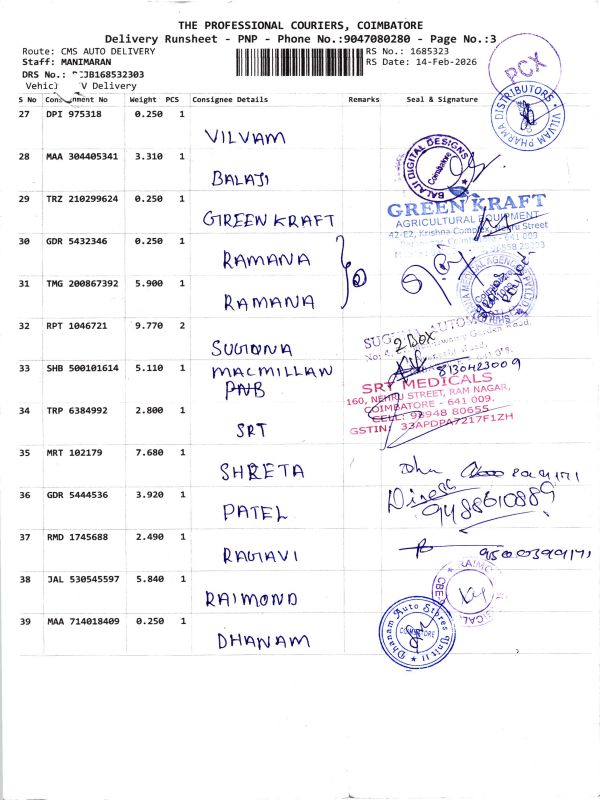 THE PROFESSIONAL COURIERS, COIMBATORE
Delivery Runsheet - PNP - Phone No.:9047080280 - Page No.:3
Route: CMS AUTO DELIVERY RS No.: 1685323
Staff: MANIMARAN RS Date: 14-Feb-2026
DRS No.: JB168532303
Vehicl V Delivery
PCX
S No Consignment No Weight PCS Consignee Details Remarks Seal & Signature
27 DPI 975318 0.250 1
VILVAM
VILVAM PHARMA DISTRIBUTORS
28 MAA 304405341 3.310 1
BALAJI
BALAJI DIGITAL DESIGNS
Coimbatore
29 TRZ 210299624 0.250 1
GREEN KRAFT
GREEN KRAFT
AGRICULTURAL EQUIPMENT
42-E2, Krishna Complex, Nehru Street
641 009
30 GDR 5432346 0.250 1
RAMANA
31 TMG 200867392 5.900 1
RAMANA
32 RPT 1046721 9.770 2
SUGUNA
SUGUNA AUTO
2 BOX
33 SHB 500101614 5.110 1
MACMILLAN
PNB
8130423009
SRT MEDICALS
160, NEHRU STREET, RAM NAGAR,
COIMBATORE - 641 009.
CELL: 98948 80655
GSTIN: 33APDPA7217F1ZH
34 TRP 6384992 2.800 1
SRT
35 MRT 102179 7.680 1
SHRETA
36 GDR 5444536 3.920 1
PATEL
Dinesh
9488610889
37 RMD 1745688 2.490 1
RAGAVI
38 JAL 530545597 5.840 1
RAIMOND
39 MAA 714018409 0.250 1
DHANAM
Dhanam Auto Stores Unit II
COIMBATORE